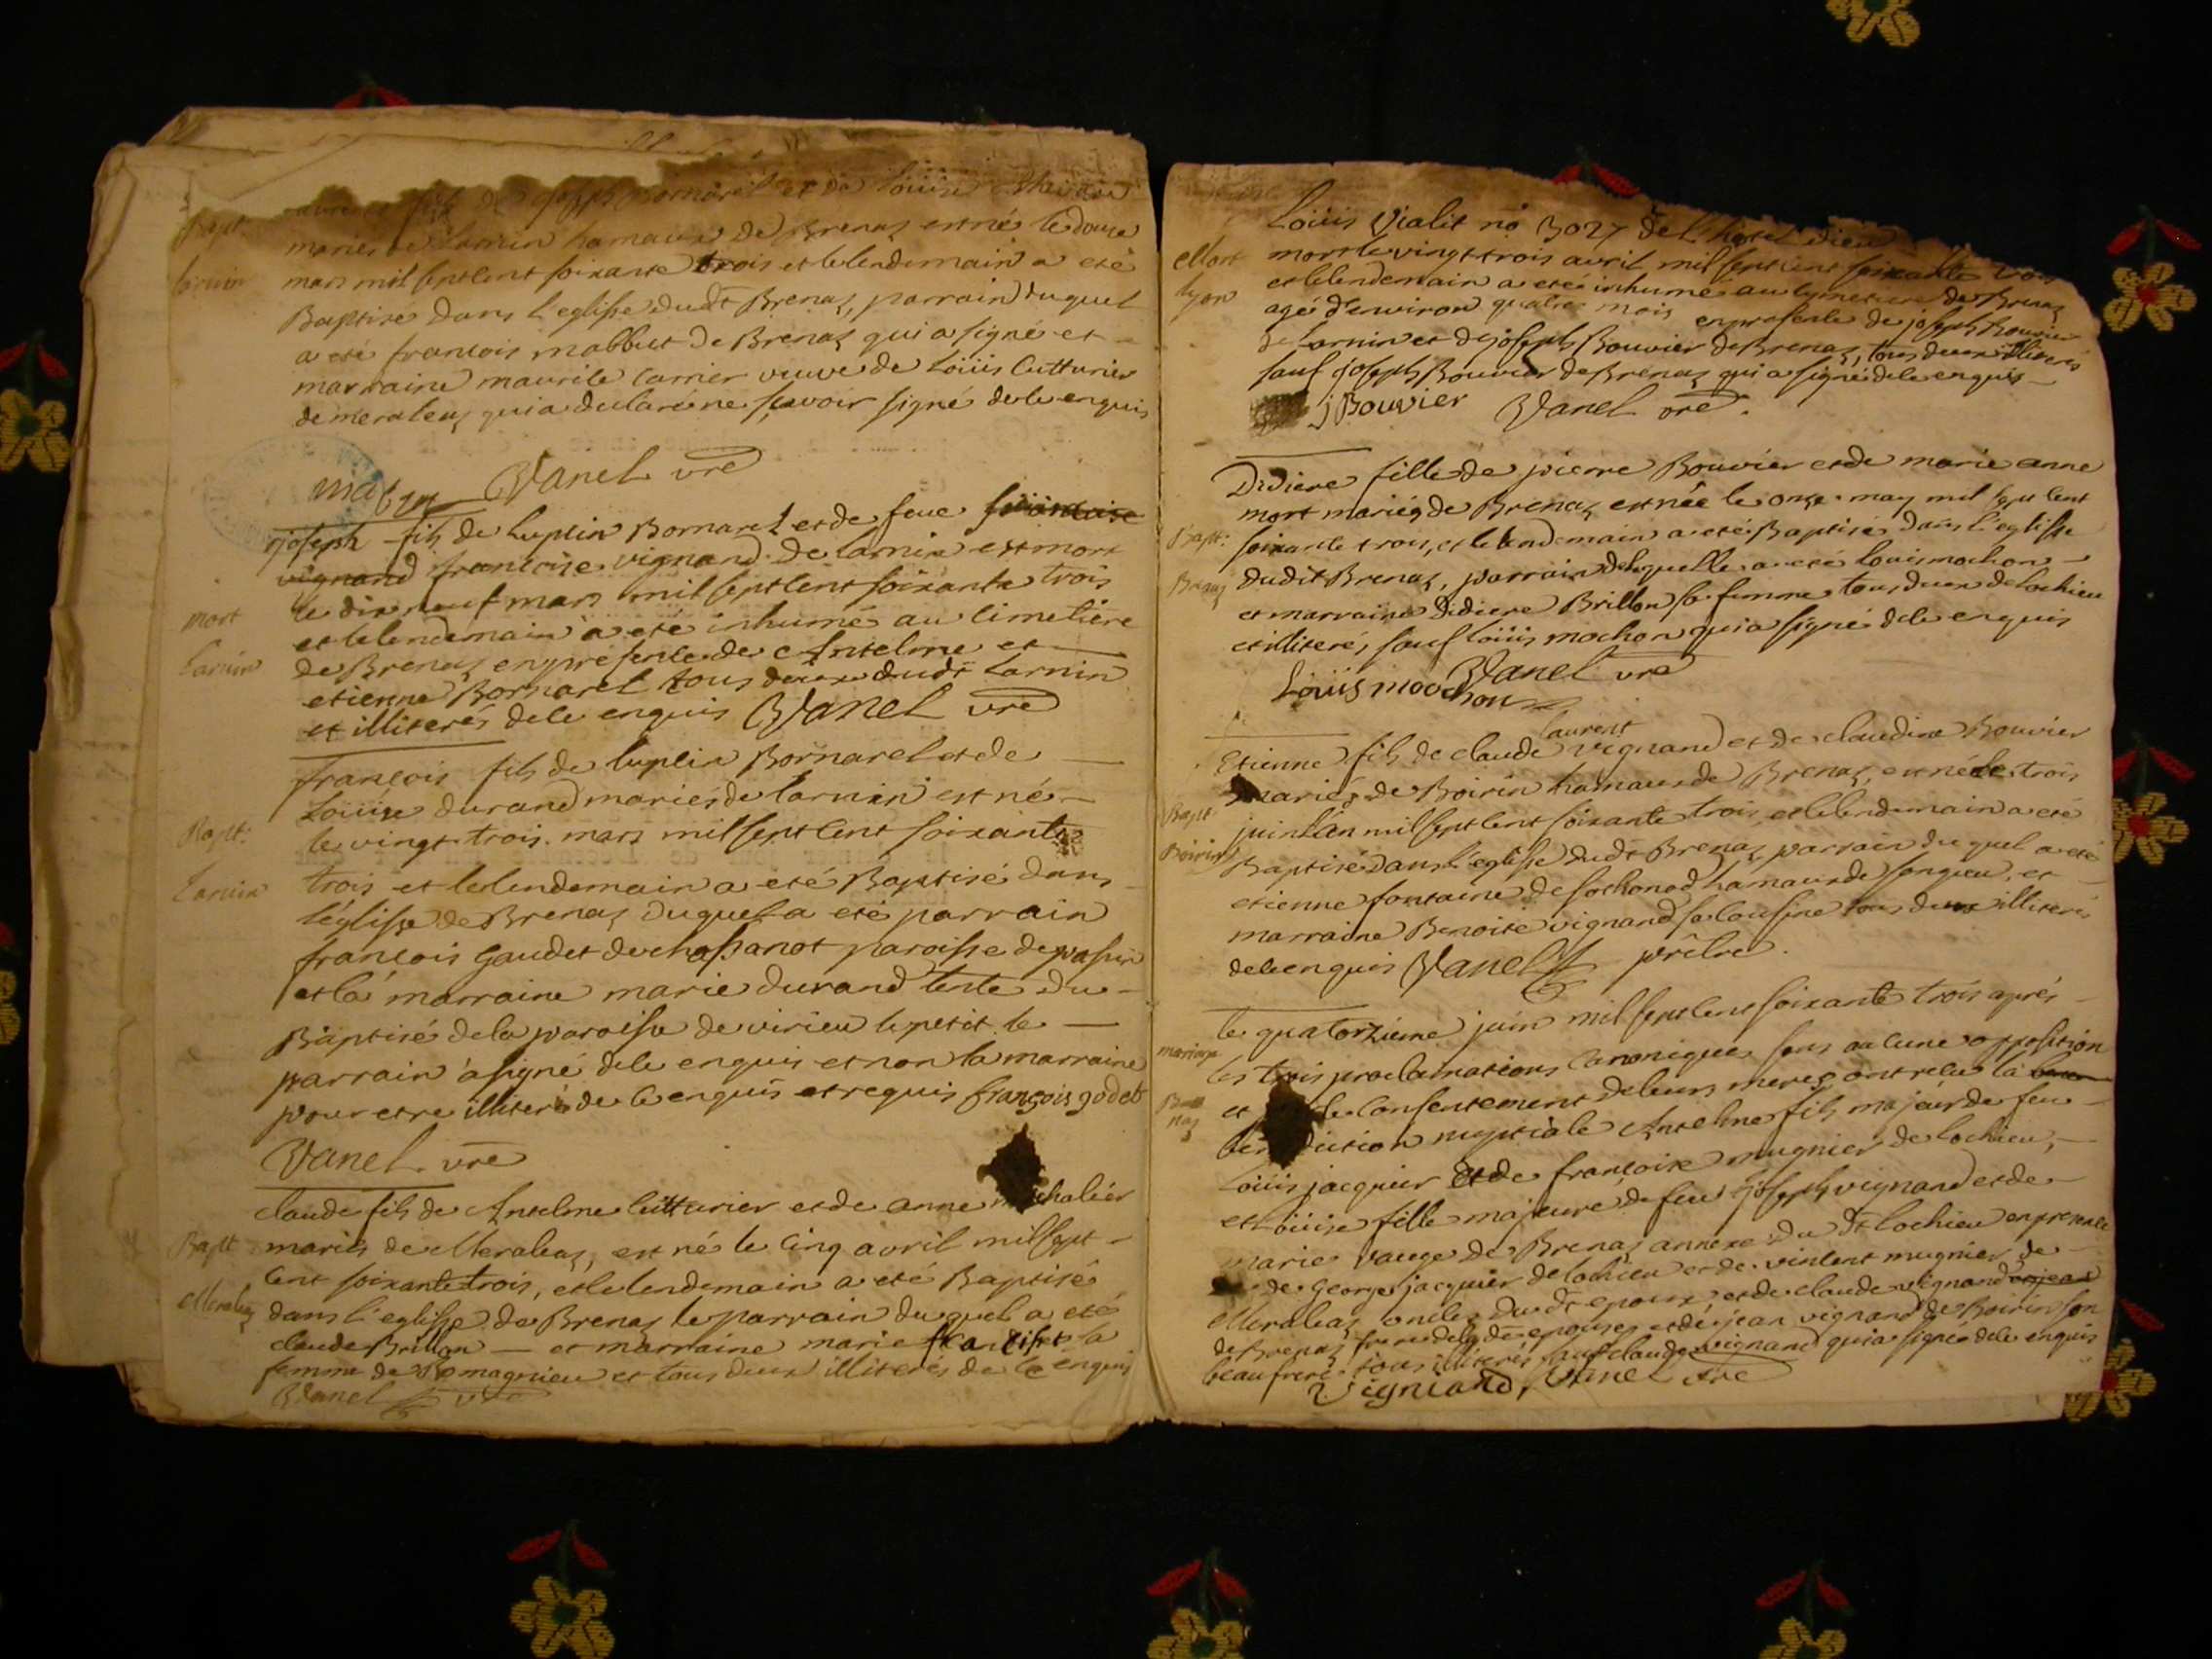 Bapt:
fils de joseph Bornarel et de Loüise
mariés de Larnin hamaux de Brenaz est né le douze
Larnin
mars mil sept cent soixante trois et le lendemain a eté
Baptisé dans l'eglisse dudt Brenaz, parrain duquel
a eté francois mabbut de Brenaz qui a signé et
marraine maurile Carrier veuve de Loüis Cutturier
de meraleaz qui a declaré ne sçavoir signé de ce enquis
Vanel vre
joseph fils de luplin Bornarel et de feue francoise
vignand francoise vignand de Larnin est mort
le dix neuf mars mil sept cent soixante trois
mort
et le lendemain a eté inhumé au cimetiére
Larnin
de Brenaz en présence de Antelme et
etienne Bornarel tous deux dudt Larnin
et illiterés de ce enquis Vanel vre
françois fils de luplin Bornarel et de
Loüise durand mariés de Larnin est né
Bapt:
le vingt trois mars mil sept cent soixante
Larnin
trois et le lendemain a eté Baptisé dans
l'église de Brenaz duquel a eté parrain
francois Gaudet de chassanot paroisse de passin
et la marraine marie durand tente du
Baptisé de la paroisse de virieu le petit le
parrain a signé de ce enquis et non la marraine
pour etre illiteré de ce enquis et requis françois godet
Vanel vre
Claude fils de Antelme Cutturier et de anne
Bapt
mariés de Meraleaz, est né le Cinq avril mil sept
cent soixante trois, et le lendemain a eté Baptisé
Meraleaz
dans l'eglisse de Brenaz le parrain duquel a eté
claude Brillon et marraine marie la
femme de Romagnieu et tous deux illiterés de ce enquis
Vanel vre
Loüis Vialit no 3027 de L'hotel dieu
Mort
mort le vingt trois avril mil sept cent soixante trois
lyon
et le lendemain a eté inhumé au cymetiere de Brenaz
agé d'environ quatre mois en presence de joseph Bouvier
de Larnin et de joseph Bouvier de Brenaz, tous deux illiterés
sauf joseph Bouvier de Brenaz qui a signé de ce enquis
jBouvier Vanel vre.
Didiere fille de pierre Bouvier et de marie anne
mort mariés de Brenaz est née le onze may mil sept cent
Bapt:
soixante trois, et le lendemain a eté Baptisé dans l'eglisse
Brenaz
dudit Brenaz, parrain de laquelle a eté louis mochon
et marraine didiere Brillon sa femme tous deux de Lochieu
et illiteré, sauf Loüis mochon qui a signé de ce enquis
Loüis moochon Vanel vre
laurent
Etienne fils de claude vignand et de claudine Bouvier
mariés de Boirin hamaux de Brenaz, est né le trois
Bapt
juin l'an mil sept cent soixante trois, et le lendemain a eté
Boirin
Baptisé dans l'eglisse dudt Brenaz parrain du quel a eté
etienne fontaine de sothonod hamaux de songieu, et
marraine Benoite vignand sa Cousine tous deux illiterés
de ce enquis Vanel prêtre.
le quatorzieme juin mil sept cent soixante trois aprés
mariage
les trois proclamations Canoniques sans aucune opposition
Brenaz
et le consentement de leurs meres ont reçu la
benediction nuptiale Antelme fils majeur de feu
Loüis jacquier et de francoise mugnier de Lochieu,
et Loüise fille majeure de feu joseph vignand et de
marie vauge de Brenaz annexe du dt Lochieu en presence
de George jacquier de Lochieu et de vincent mugnier de
Meraleaz oncles du dt epoux et de claude vignand et jean
de Brenaz frere de la de epouse et de jean vignand de Boirin son
beau frere tous illiterés sauf claude vignand qui a signé de ce enquis
Vigniand, Vanel vre